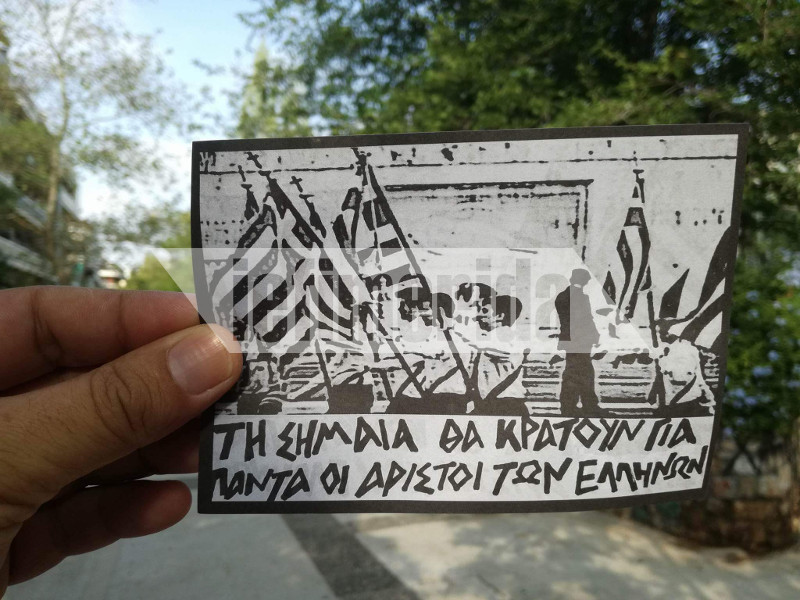 iefimerida
ΤΗ ΣΗΜΑΙΑ ΘΑ ΚΡΑΤΟΥΝ ΓΙΑ
ΠΑΝΤΑ ΟΙ ΑΡΙΣΤΟΙ ΤΩΝ ΕΛΛΗΝΩΝ